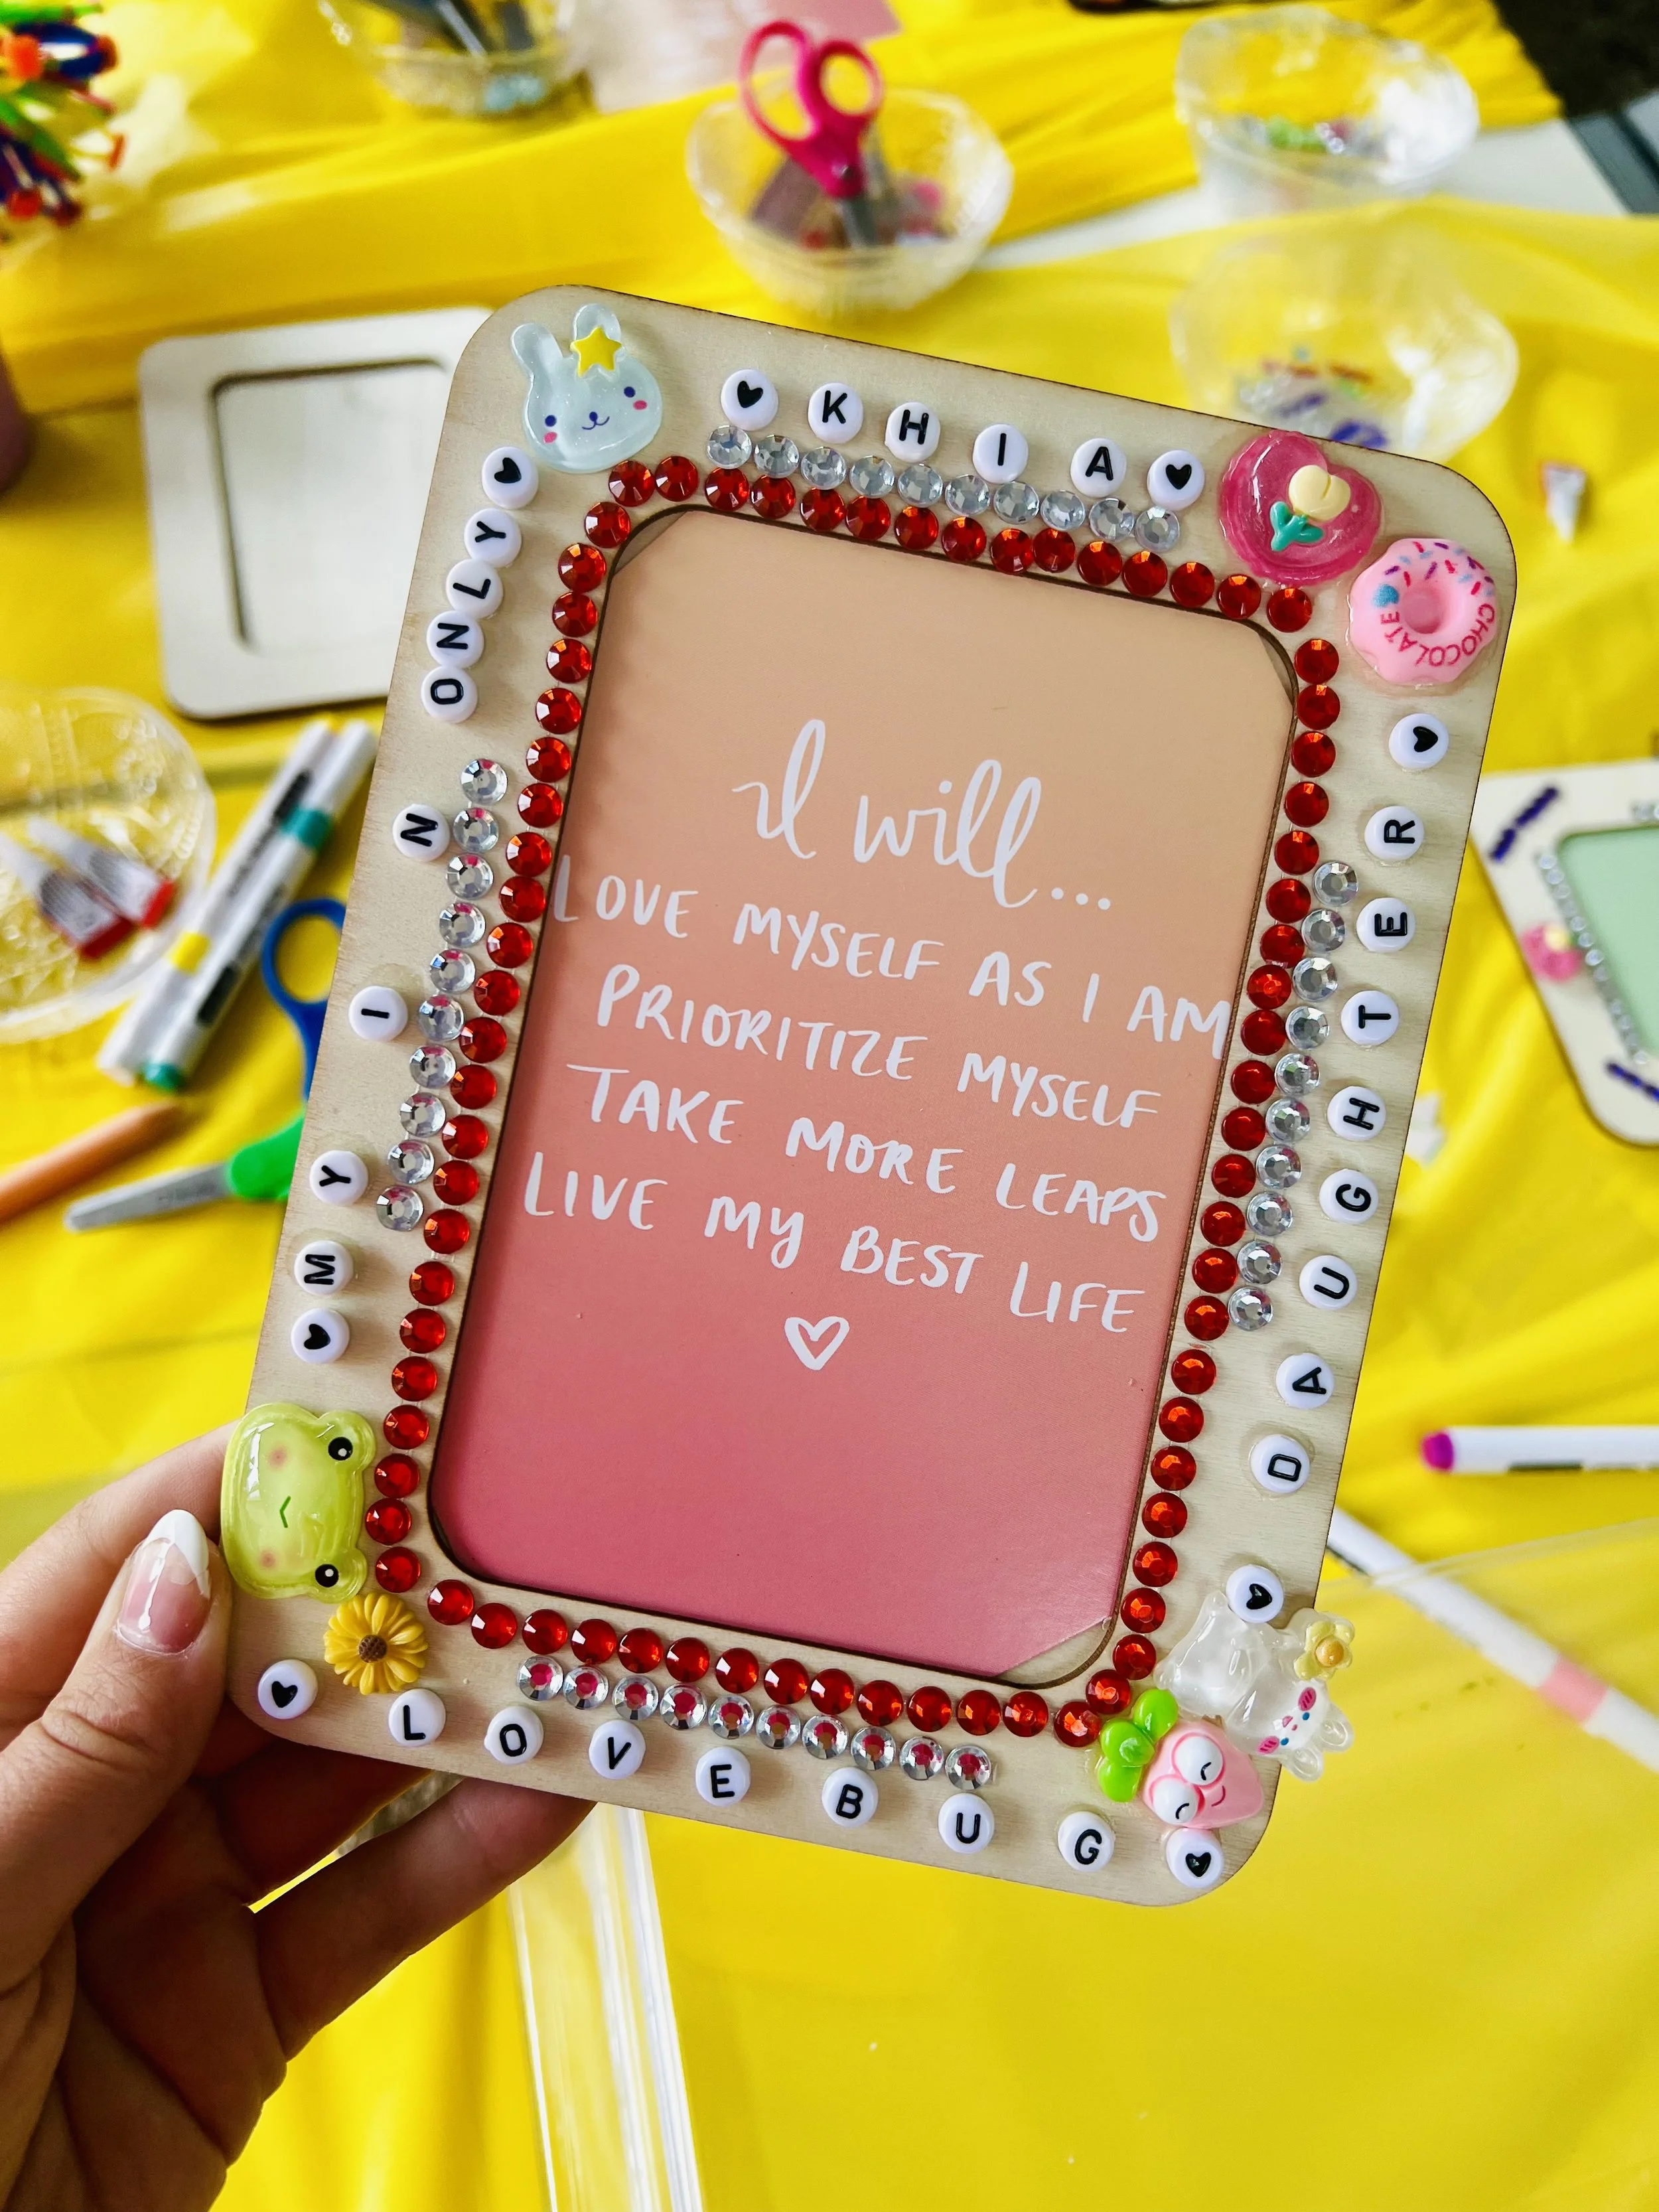 KHIA
CHOCOLATE
MY I N ONLY
I will...
LOVE MYSELF AS I AM
PRIORITIZE MYSELF
TAKE MORE LEAPS
LIVE MY BEST LIFE
DAUGHTER
LOVEBUG